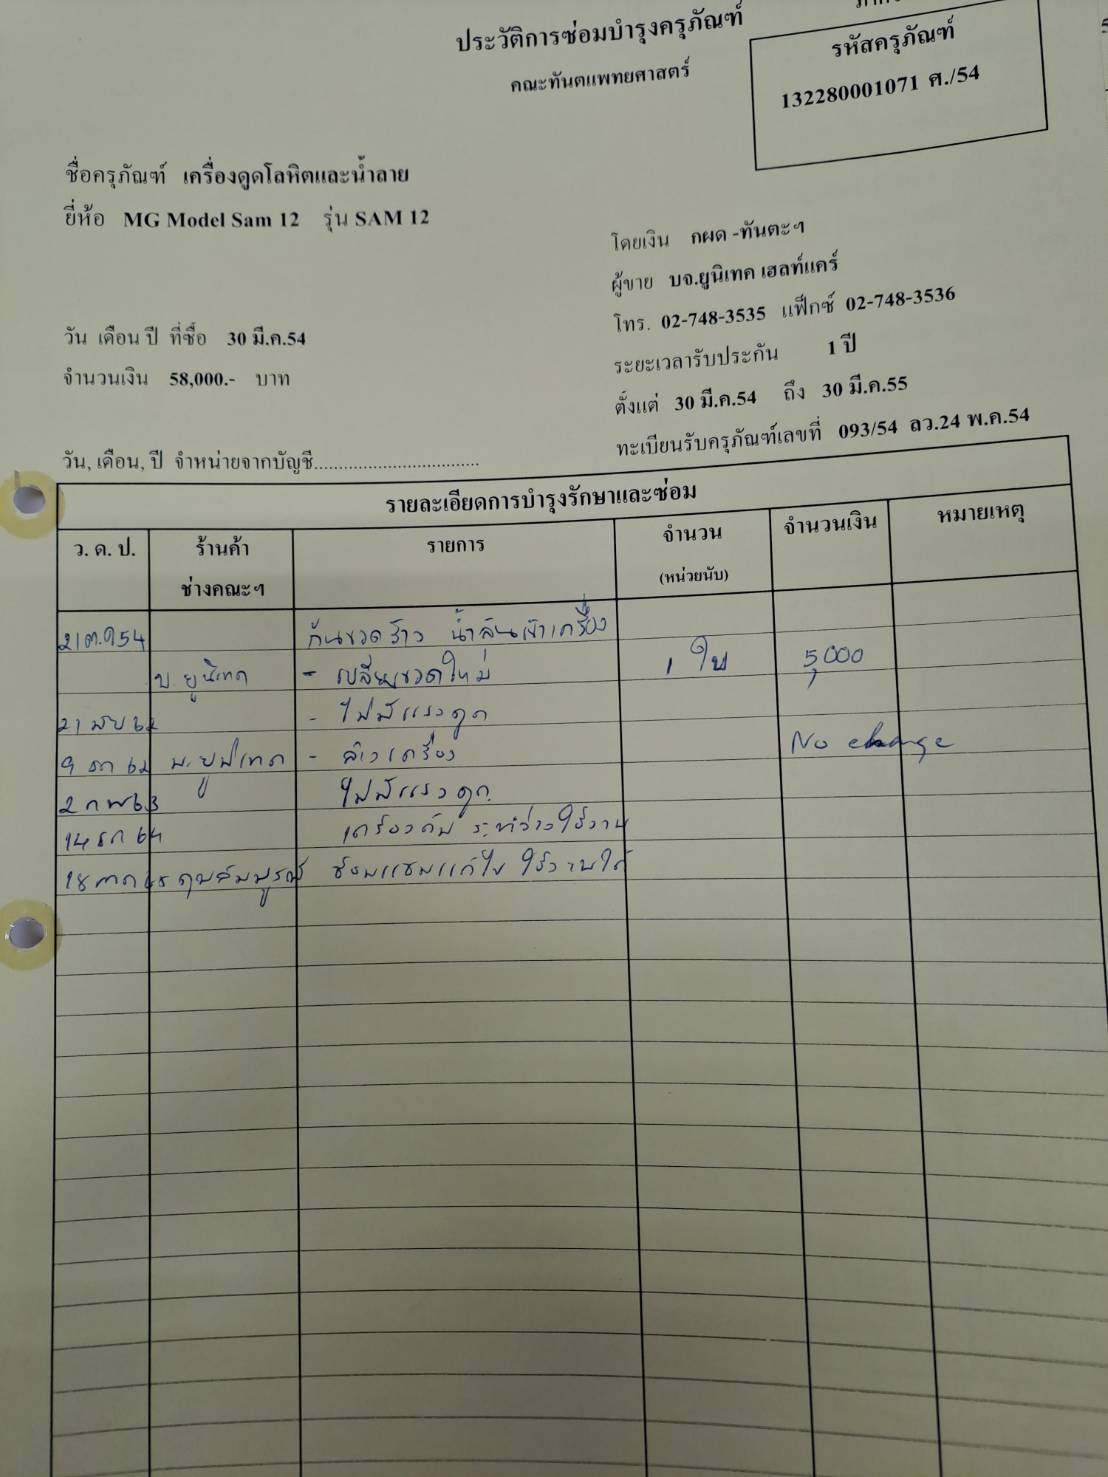 ประวัติการซ่อมบำรุงครุภัณฑ์
คณะทันตแพทยศาสตร์
รหัสครุภัณฑ์
132280001071 ศ./54
ชื่อครุภัณฑ์ เครื่องดูดโลหิตและน้ำลาย
ยี่ห้อ MG Model Sam 12 รุ่น SAM 12
โดยเงิน กผด -ทันตะฯ
ผู้ขาย บจ.ยูนิเทค เฮลท์แคร์
โทร. 02-748-3535 แฟ็กซ์ 02-748-3536
วัน เดือน ปี ที่ซื้อ 30 มี.ค.54
ระยะเวลารับประกัน 1 ปี
จำนวนเงิน 58,000.- บาท
ตั้งแต่ 30 มี.ค.54 ถึง 30 มี.ค.55
ทะเบียนรับครุภัณฑ์เลขที่ 093/54 ลว.24 พ.ค.54
วัน, เดือน, ปี จำหน่ายจากบัญชี..................................
รายละเอียดการบำรุงรักษาและซ่อม
ว. ด. ป. ร้านค้า รายการ จำนวน จำนวนเงิน หมายเหตุ
ช่างคณะฯ (หน่วยนับ)
21 ต.ค 54 ก้นขวดร้าว น้ำล้นเข้าเครื่อง
บ. ยูนิเทค - เปลี่ยนขวดใหม่ 1 ใบ 5,000
21 - ไม่มีแรงดูด
9 ธค 62 บ. ยูนิเทค - ล้างเครื่อง No charge
2 กพ 63 ไม่มีแรงดูด
14 ธค 64 เครื่องดับ ระหว่างใช้งาน
18 ซ่อมแซมแก้ไข ใช้งานได้